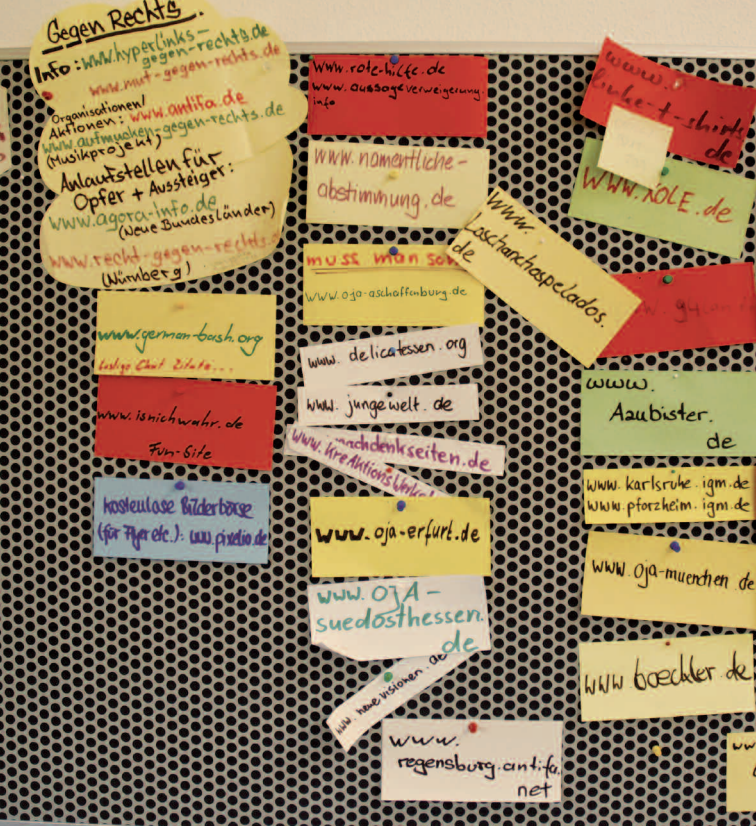 Gegen Rechts.
Info: www.hyperlinks-
gegen-rechts.de
www.mut-gegen-rechts.de
Organisationen/
Aktionen: www.antifa.de
www.aufmucken-gegen-rechts.de
(Musikprojekt)
Anlaufstellen für
Opfer + Aussteiger:
www.agora-info.de
(Neue Bundesländer)
www.recht-gegen-rechts.
(Nürnberg)
www.german-bash.org
Lustige Chat Zitate...
www.isnichwahr.de
Fun-Site
kostenlose Bilderbörse
(für Flyer etc.): www.pixelio.de
www.rote-hilfe.de
www.aussageverweigerung.
info
www.namentliche-
abstimmung.de
muss man
www.oja-aschaffenburg.de
www.delicatessen.org
www.jungewelt.de
nachdenkseiten.de
www.
www.oja-erfurt.de
www.OJA-
suedosthessen.
de
www.neuevisionen.de
www.
regensburg.antifa.
net
www.
linke-t-shirts
de
www.XOLE.de
www.
Laschanchaspelados.
de
www.
Azubister.
de
www.karlsruhe.igm.de
www.pforzheim.igm.de
www.oja-muenchen.de
www.boeckler.de